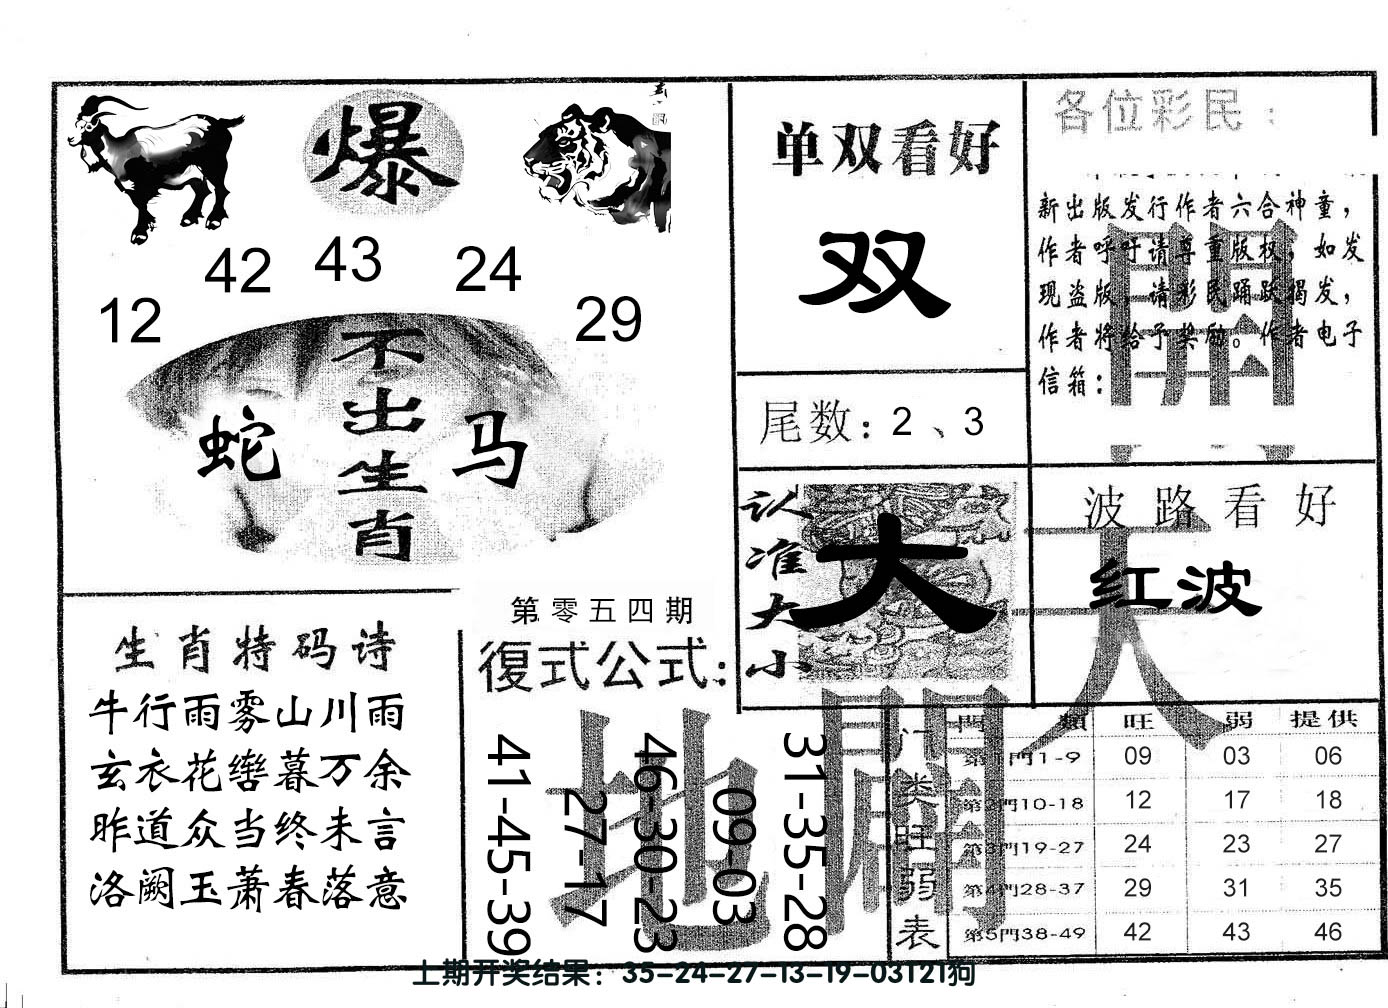 爆
42 43 24
12 29
不出生肖
蛇 马
生肖特码诗
牛行雨雾山川雨
玄衣花辔暮万余
昨道众当终未言
洛阙玉萧春落意
第零五四期
復式公式：
41-45-39
27-17
46-30-23
09-03
31-35-28
地
開
单双看好
双
尾数：2、3
认准大小
大
各位彩民：
新出版发行作者六合神童，
作者呼吁请尊重版权，如发
现盗版，请彩民踊跃揭发，
作者将给予奖励。作者电子
信箱：
開
天
波路看好
红波
门类旺弱表
門類 旺 弱 提供
第1門1-9 09 03 06
第2門10-18 12 17 18
第3門19-27 24 23 27
第4門28-37 29 31 35
第5門38-49 42 43 46
上期开奖结果：35-24-27-13-19-03T21狗